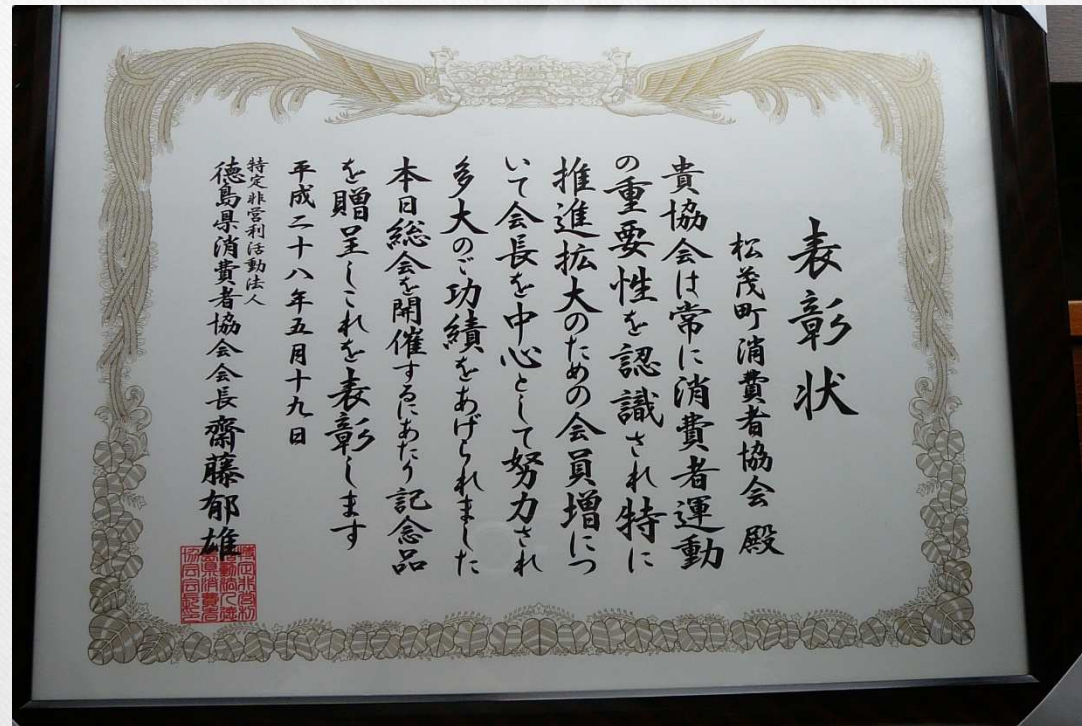 表彰状
松茂町消費者協会 殿
貴協会は常に消費者運動
の重要性を認識され特に
推進拡大のための会員増につ
いて会長を中心として努力され
多大のご功績をあげられました
本日総会を開催するにあたり記念品
を贈呈しこれを表彰します
平成二十八年五月十九日
特定非営利活動法人
徳島県消費者協会会長 齋藤郁雄